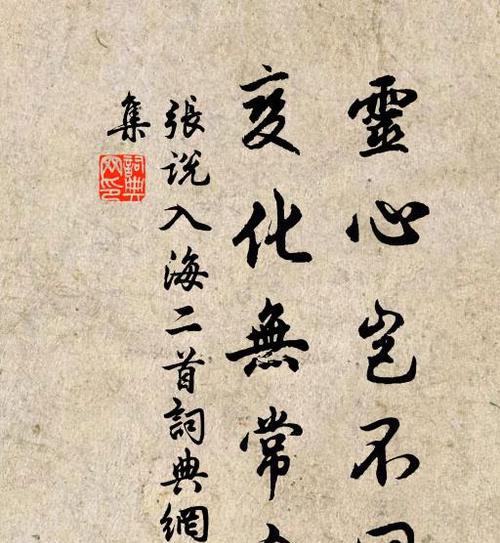 靈心豈不
變化無常
張說入海二首詞典網
集
詞典
網印